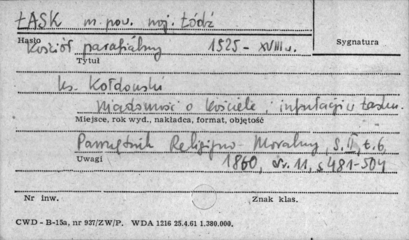 ŁASK m. pow. woj. Łódź
Hasło
Kościół parafialny 1525 - XVIII w.
Sygnatura
Tytuł
ks. Kołdowski
Wiadomość o kościele i infułacji w Łasku.
Miejsce, rok wyd., nakładca, format, objętość
Pamiętnik Religijno Moralny, S. II, t. 6
Uwagi
1860, nr. 11, s 481-504
Nr inw.
Znak klas.
CWD - B-15a, nr 937/ZW/P. WDA 1216 25.4.61 1.380.000.